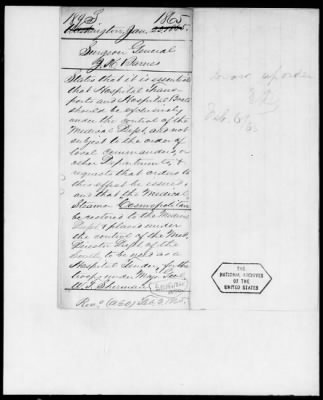 189 S 1865
Washington, Jan. 23, 1865.
Surgeon General
J. K. Barnes
States that it is essential
that Hospital Trans-
ports and Hospital Boats
should be exclusively
under the control of the
Medical Dept, and not
subject to the order of
local commanders or
other Departments, &
requests that orders to
this effect be issued,
and that the Medical
Steamer Cosmopolitan
be restored to the Medical
Dept. & placed under
the control of the Med.
Director Dept. of the
South, to be used as a
Hospital Tender for the
troops under Maj. Gen.
W. T. Sherman.
Rec'd (AGO) Feb. 3, 1865.
Feb. 6
65
THE
NATIONAL ARCHIVES
OF THE
UNITED STATES